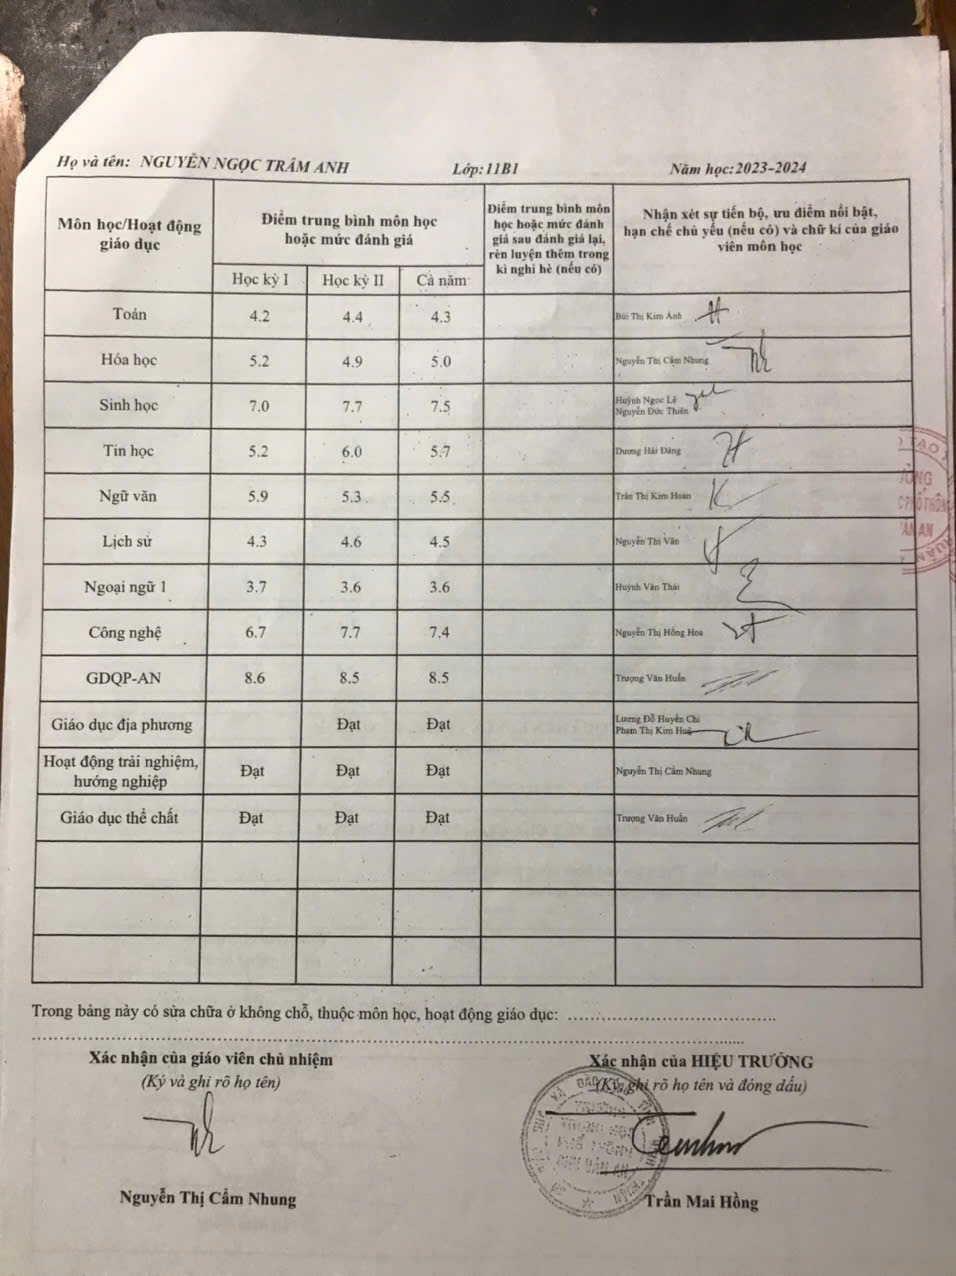 Họ và tên: NGUYỄN NGỌC TRÂM ANH Lớp: 11B1 Năm học: 2023-2024
Môn học/Hoạt động giáo dục
Điểm trung bình môn học hoặc mức đánh giá
Điểm trung bình môn học hoặc mức đánh giá sau đánh giá lại, rèn luyện thêm trong kì nghỉ hè (nếu có)
Nhận xét sự tiến bộ, ưu điểm nổi bật, hạn chế chủ yếu (nếu có) và chữ kí của giáo viên môn học
Học kỳ I Học kỳ II Cả năm
Toán 4.2 4.4 4.3 Bùi Thị Kim Ánh
Hóa học 5.2 4.9 5.0 Nguyễn Thị Cẩm Nhung
Sinh học 7.0 7.7 7.5 Huỳnh Ngọc Lệ
Nguyễn Đức Thiên
Tin học 5.2 6.0 5.7 Dương Hải Đăng
Ngữ văn 5.9 5.3 5.5 Trần Thị Kim Hoan
Lịch sử 4.3 4.6 4.5 Nguyễn Thị Vân
Ngoại ngữ 1 3.7 3.6 3.6 Huỳnh Văn Thái
Công nghệ 6.7 7.7 7.4 Nguyễn Thị Hồng Hoa
GDQP-AN 8.6 8.5 8.5 Trượng Văn Huấn
Giáo dục địa phương Đạt Đạt Lương Đỗ Huyền Chi
Phạm Thị Kim Huệ
Hoạt động trải nghiệm, hướng nghiệp Đạt Đạt Đạt Nguyễn Thị Cẩm Nhung
Giáo dục thể chất Đạt Đạt Đạt Trượng Văn Huấn
Trong bảng này có sửa chữa ở không chỗ, thuộc môn học, hoạt động giáo dục: ....................................
Xác nhận của giáo viên chủ nhiệm
(Ký và ghi rõ họ tên)
Nguyễn Thị Cẩm Nhung
Xác nhận của HIỆU TRƯỞNG
(Ký, ghi rõ họ tên và đóng dấu)
Trần Mai Hồng